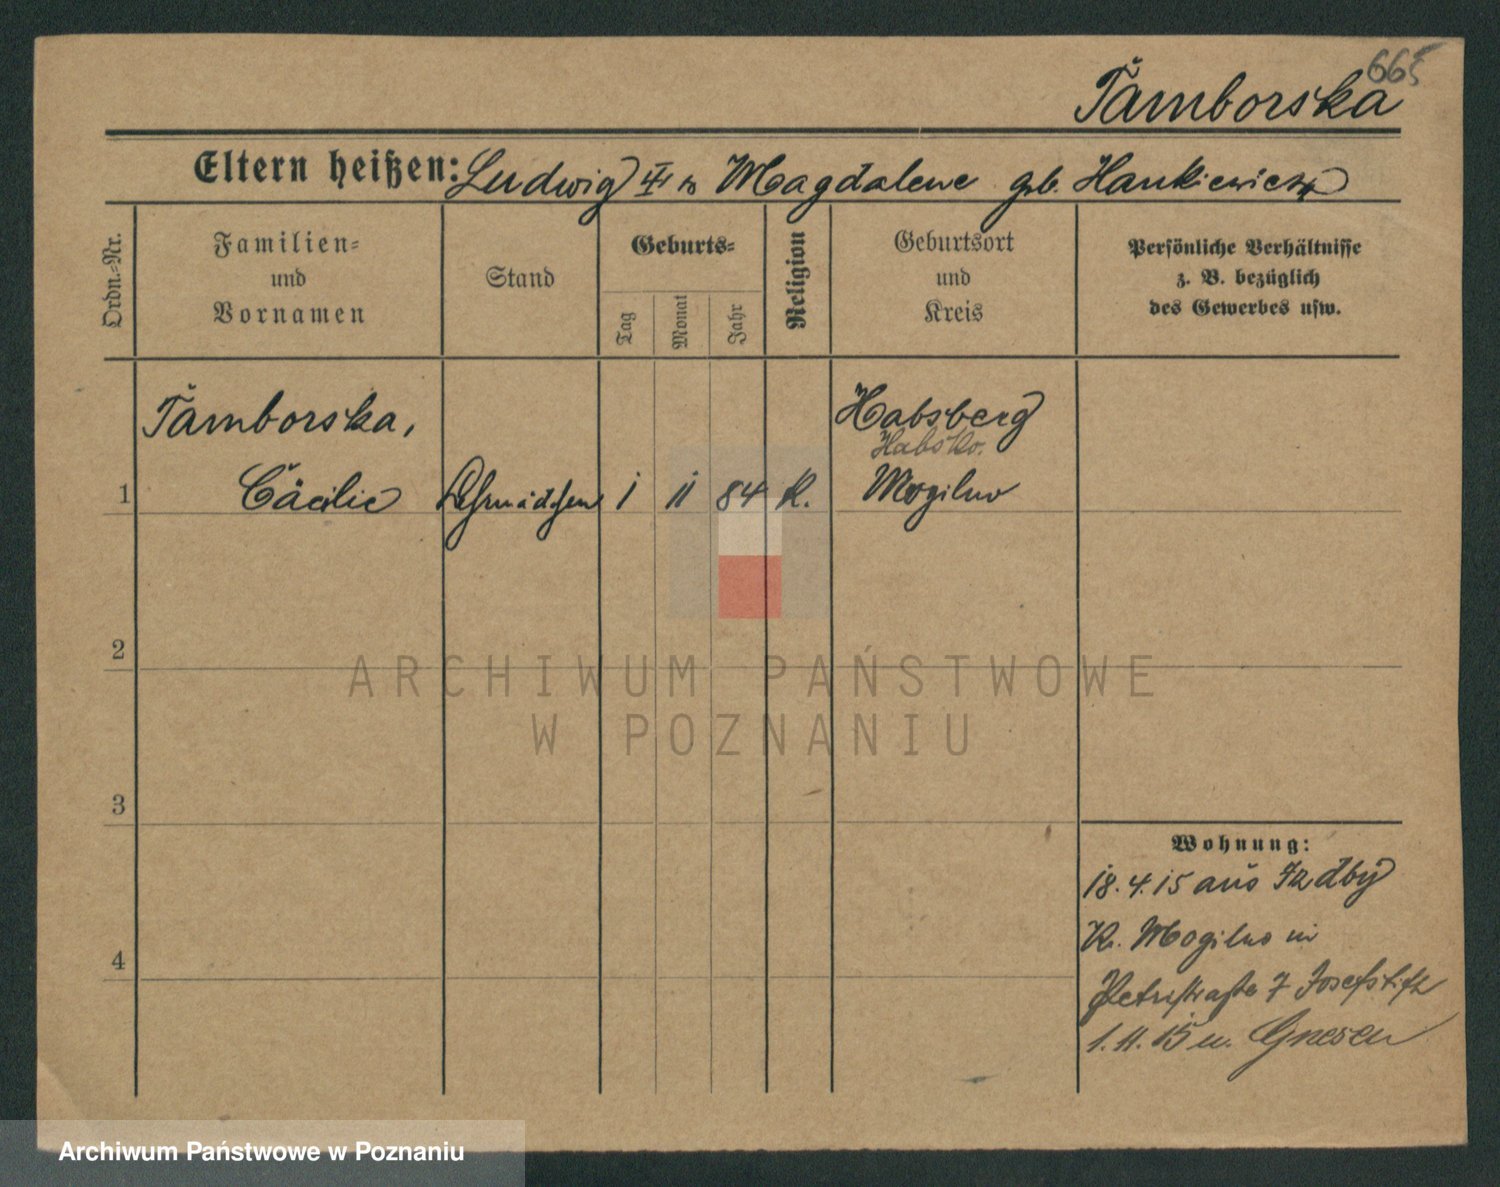 665
Tamborska
Eltern heißen: Ludwig T. u Magdalene geb. Hankiewicz
Ordn.-Nr.
Familien-
und
Vornamen
Stand
Geburts-
Tag
Monat
Jahr
Religion
Geburtsort
und
Kreis
Persönliche Verhältnisse
z. B. bezüglich
des Gewerbes usw.
Tamborska,
Cäcilie
Lehrmädchen
1
11
84
K.
Habsberg
Habsko.
Mogilno
1
2
3
4
Wohnung:
18.4.15 aus Izdby
Kr. Mogilno in
Petristraße 7 Josefstift
1.11.15 n. Gnesen
ARCHIWUM PAŃSTWOWE
W POZNANIU
Archiwum Państwowe w Poznaniu